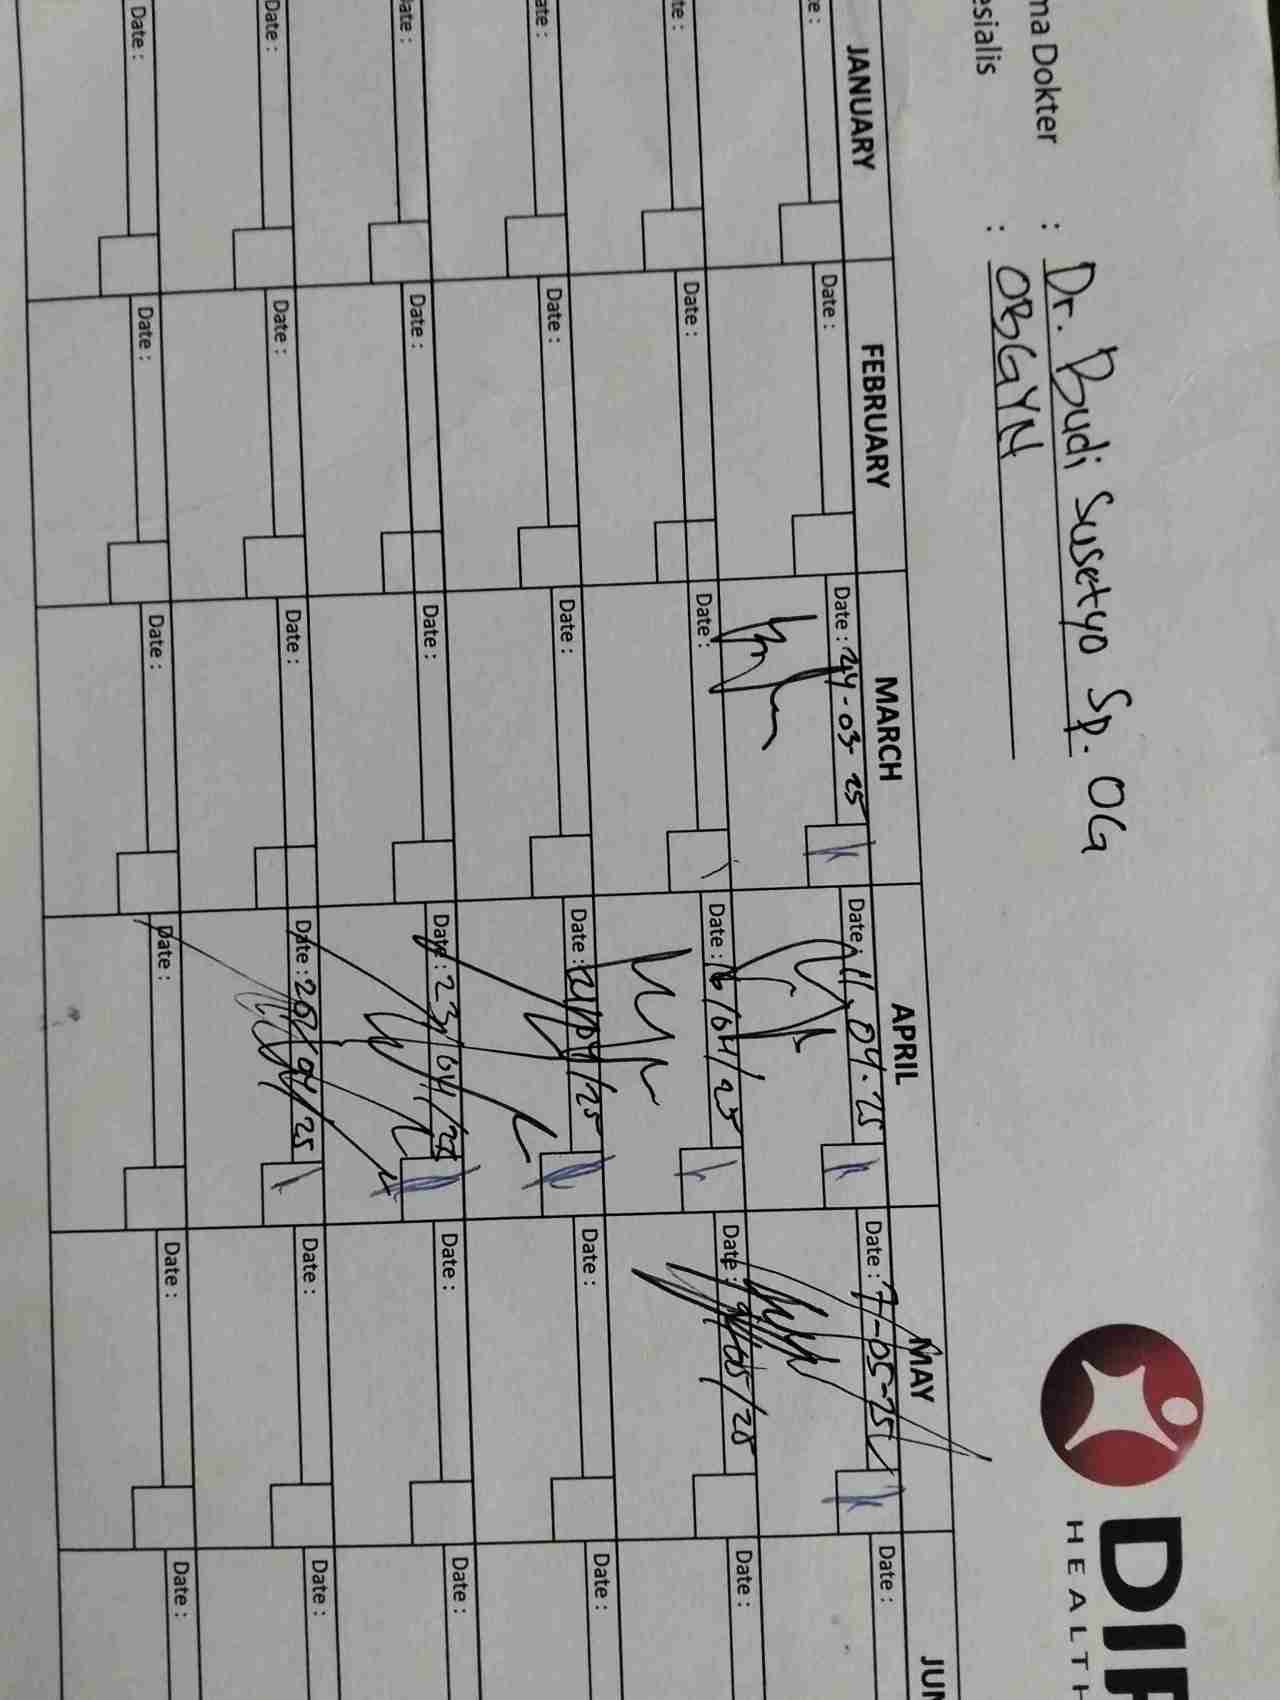 ma Dokter : Dr. Budi Susetyo Sp. OG
esialis : OBGYN
DI
HEALTH
JANUARY FEBRUARY MARCH APRIL MAY JUN
e : Date : Date : 24-03-25 Date : 11.04.25 Date : 7-05-25 Date :
te : Date : Date : Date : 16/04/25 Date : /05/25 Date :
ate : Date : Date : Date : 21/04/25 Date : Date :
ate : Date : Date : Date : 23/04/25 Date : Date :
Date : Date : Date : Date : 26/04/25 Date : Date :
Date : Date : Date : Date : Date : Date :